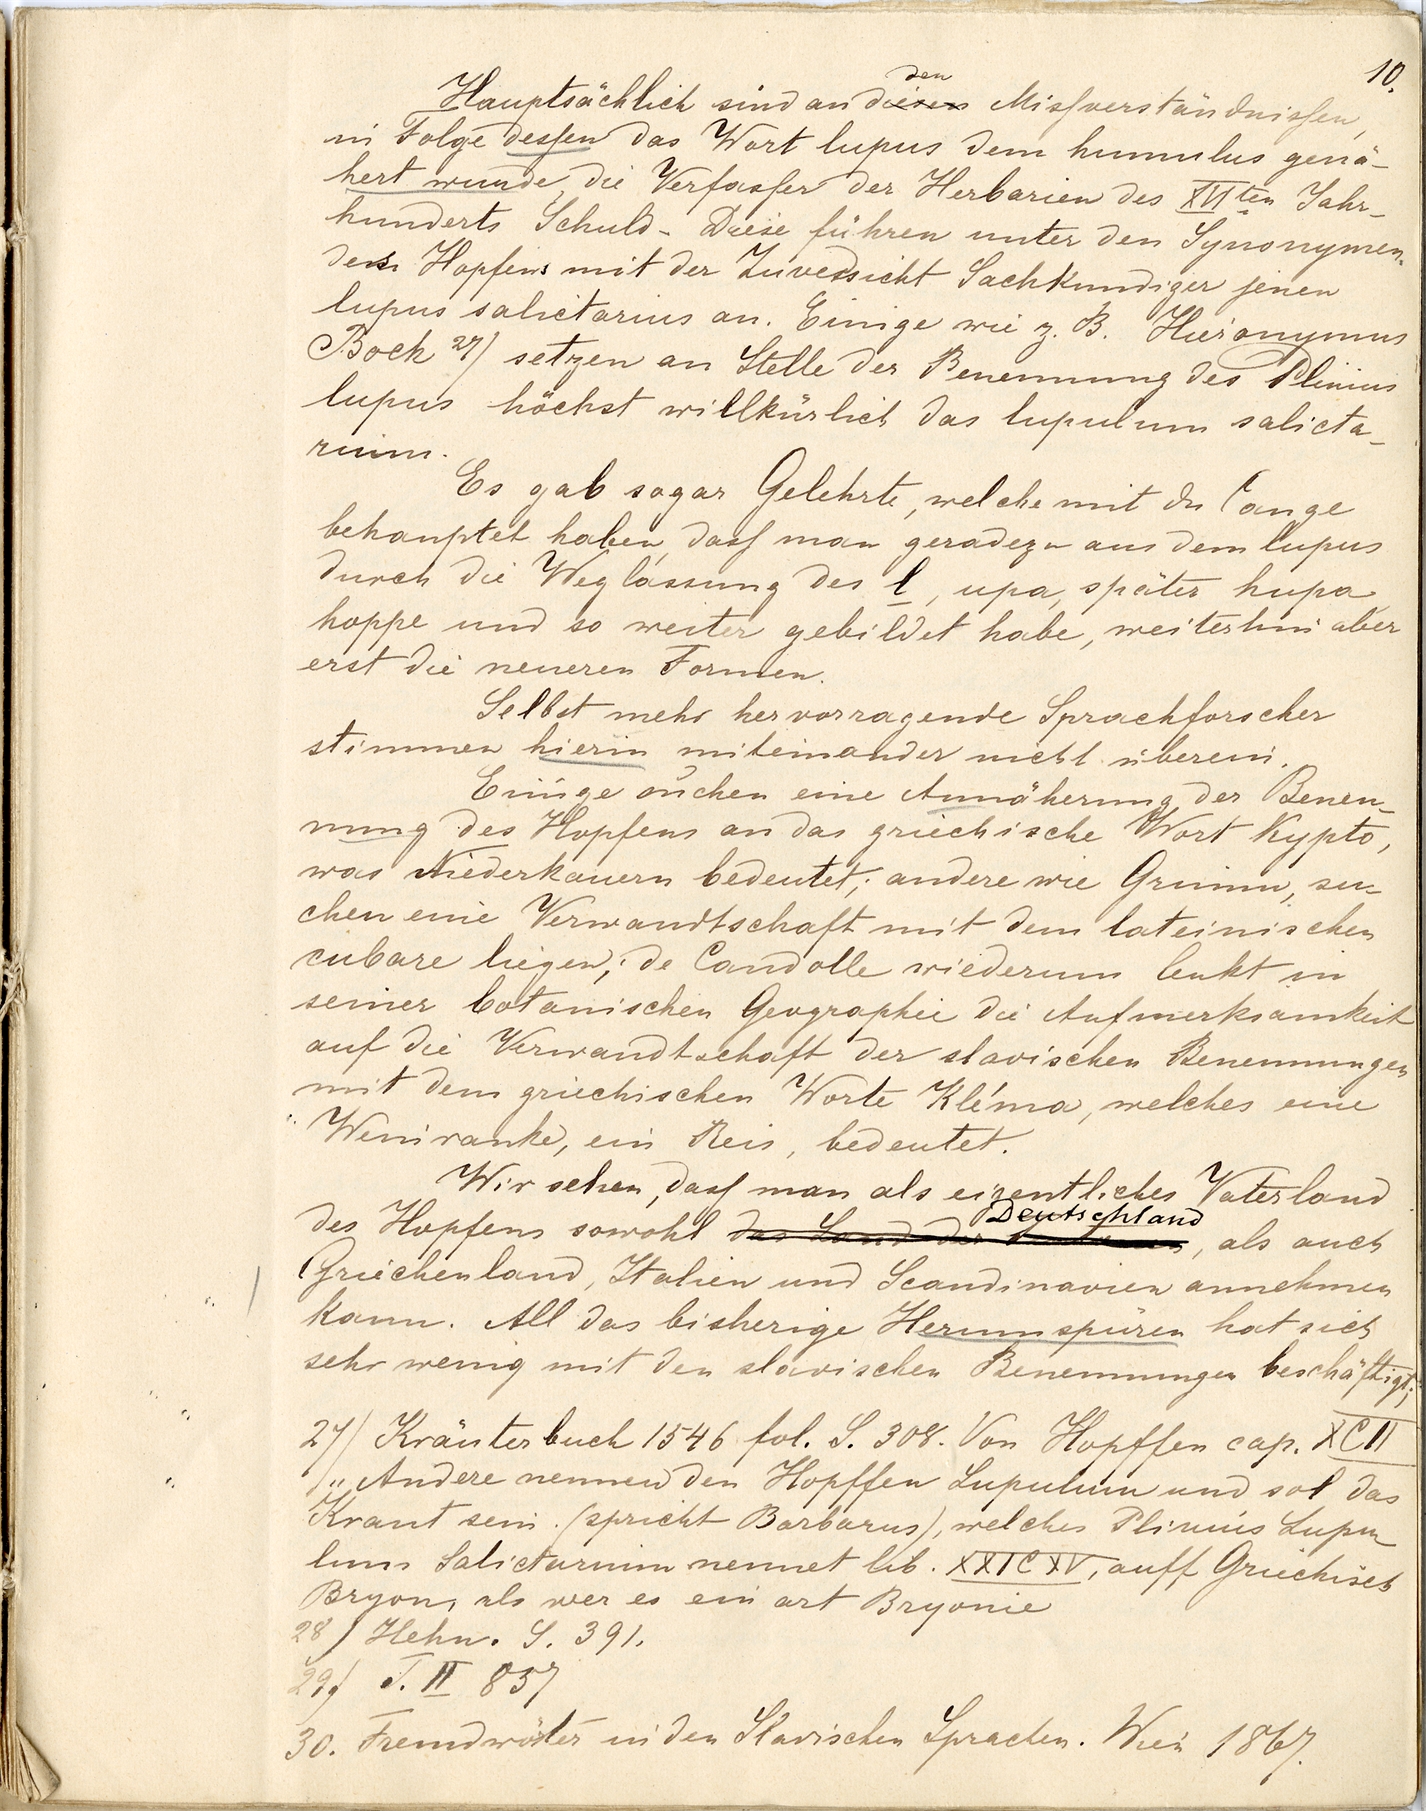 10.
den
Hauptsächlich sind an diesen Missverständnissen,
in Folge dessen das Wort lupus dem humulus genä-
hert wurde, die Verfasser der Herbarien des XVIten Jahr-
hunderts Schuld. Diese führen unter den Synonymen
des Hopfens mit der Zuversicht Sachkundiger jenen
lupus salictarius an. Einige wie z. B. Hieronymus
Bock 27) setzen an Stelle der Benennung des Plinius
lupus höchst willkürlich das lupulum salicta-
rium.
Es gab sogar Gelehrte, welche mit du Cange
behauptet haben, dass man geradezu aus dem lupus
durch die Weglassung des l, upa, später hupa,
hoppe und so weiter gebildet habe, weiterhin aber
erst die neueren Formen.
Selbst mehr hervorragende Sprachforscher
stimmen hierin miteinander nicht überein.
Einige suchen eine Annäherung der Benen-
nung des Hopfens an das griechische Wort Kypto,
was Niederkauern bedeutet; andere wie Grimm, su-
chen eine Verwandtschaft mit dem lateinischen
cubare liegen; de Candolle wiederum lenkt in
seiner botanischen Geographie die Aufmerksamkeit
auf die Verwandtschaft der slavischen Benennungen
mit dem griechischen Worte Kléma, welches eine
Weinranke, ein Reis, bedeutet.
Wir sehen, dass man als eigentliches Vaterland
Deutschland
des Hopfens sowohl das Land der , als auch
Griechenland, Italien und Scandinavien annehmen
kann. All das bisherige Herumspüren hat sich
sehr wenig mit den slavischen Benennungen beschäftigt;
27) Kräuterbuch 1546 fol. S. 308. Von Hopffen cap. XCII
„Andere nennen den Hopffen Lupulum und sol das
Kraut sein (spricht Barbarus), welches Plinius Lupu-
lum Salictarium nennet lib. XXI C XV, auff Griechisch
Bryon, als wer es ein art Bryonie
28) Hehn. S. 391.
29) T. II 857
30. Fremdwörter in den Slavischen Sprachen. Wien 1867.